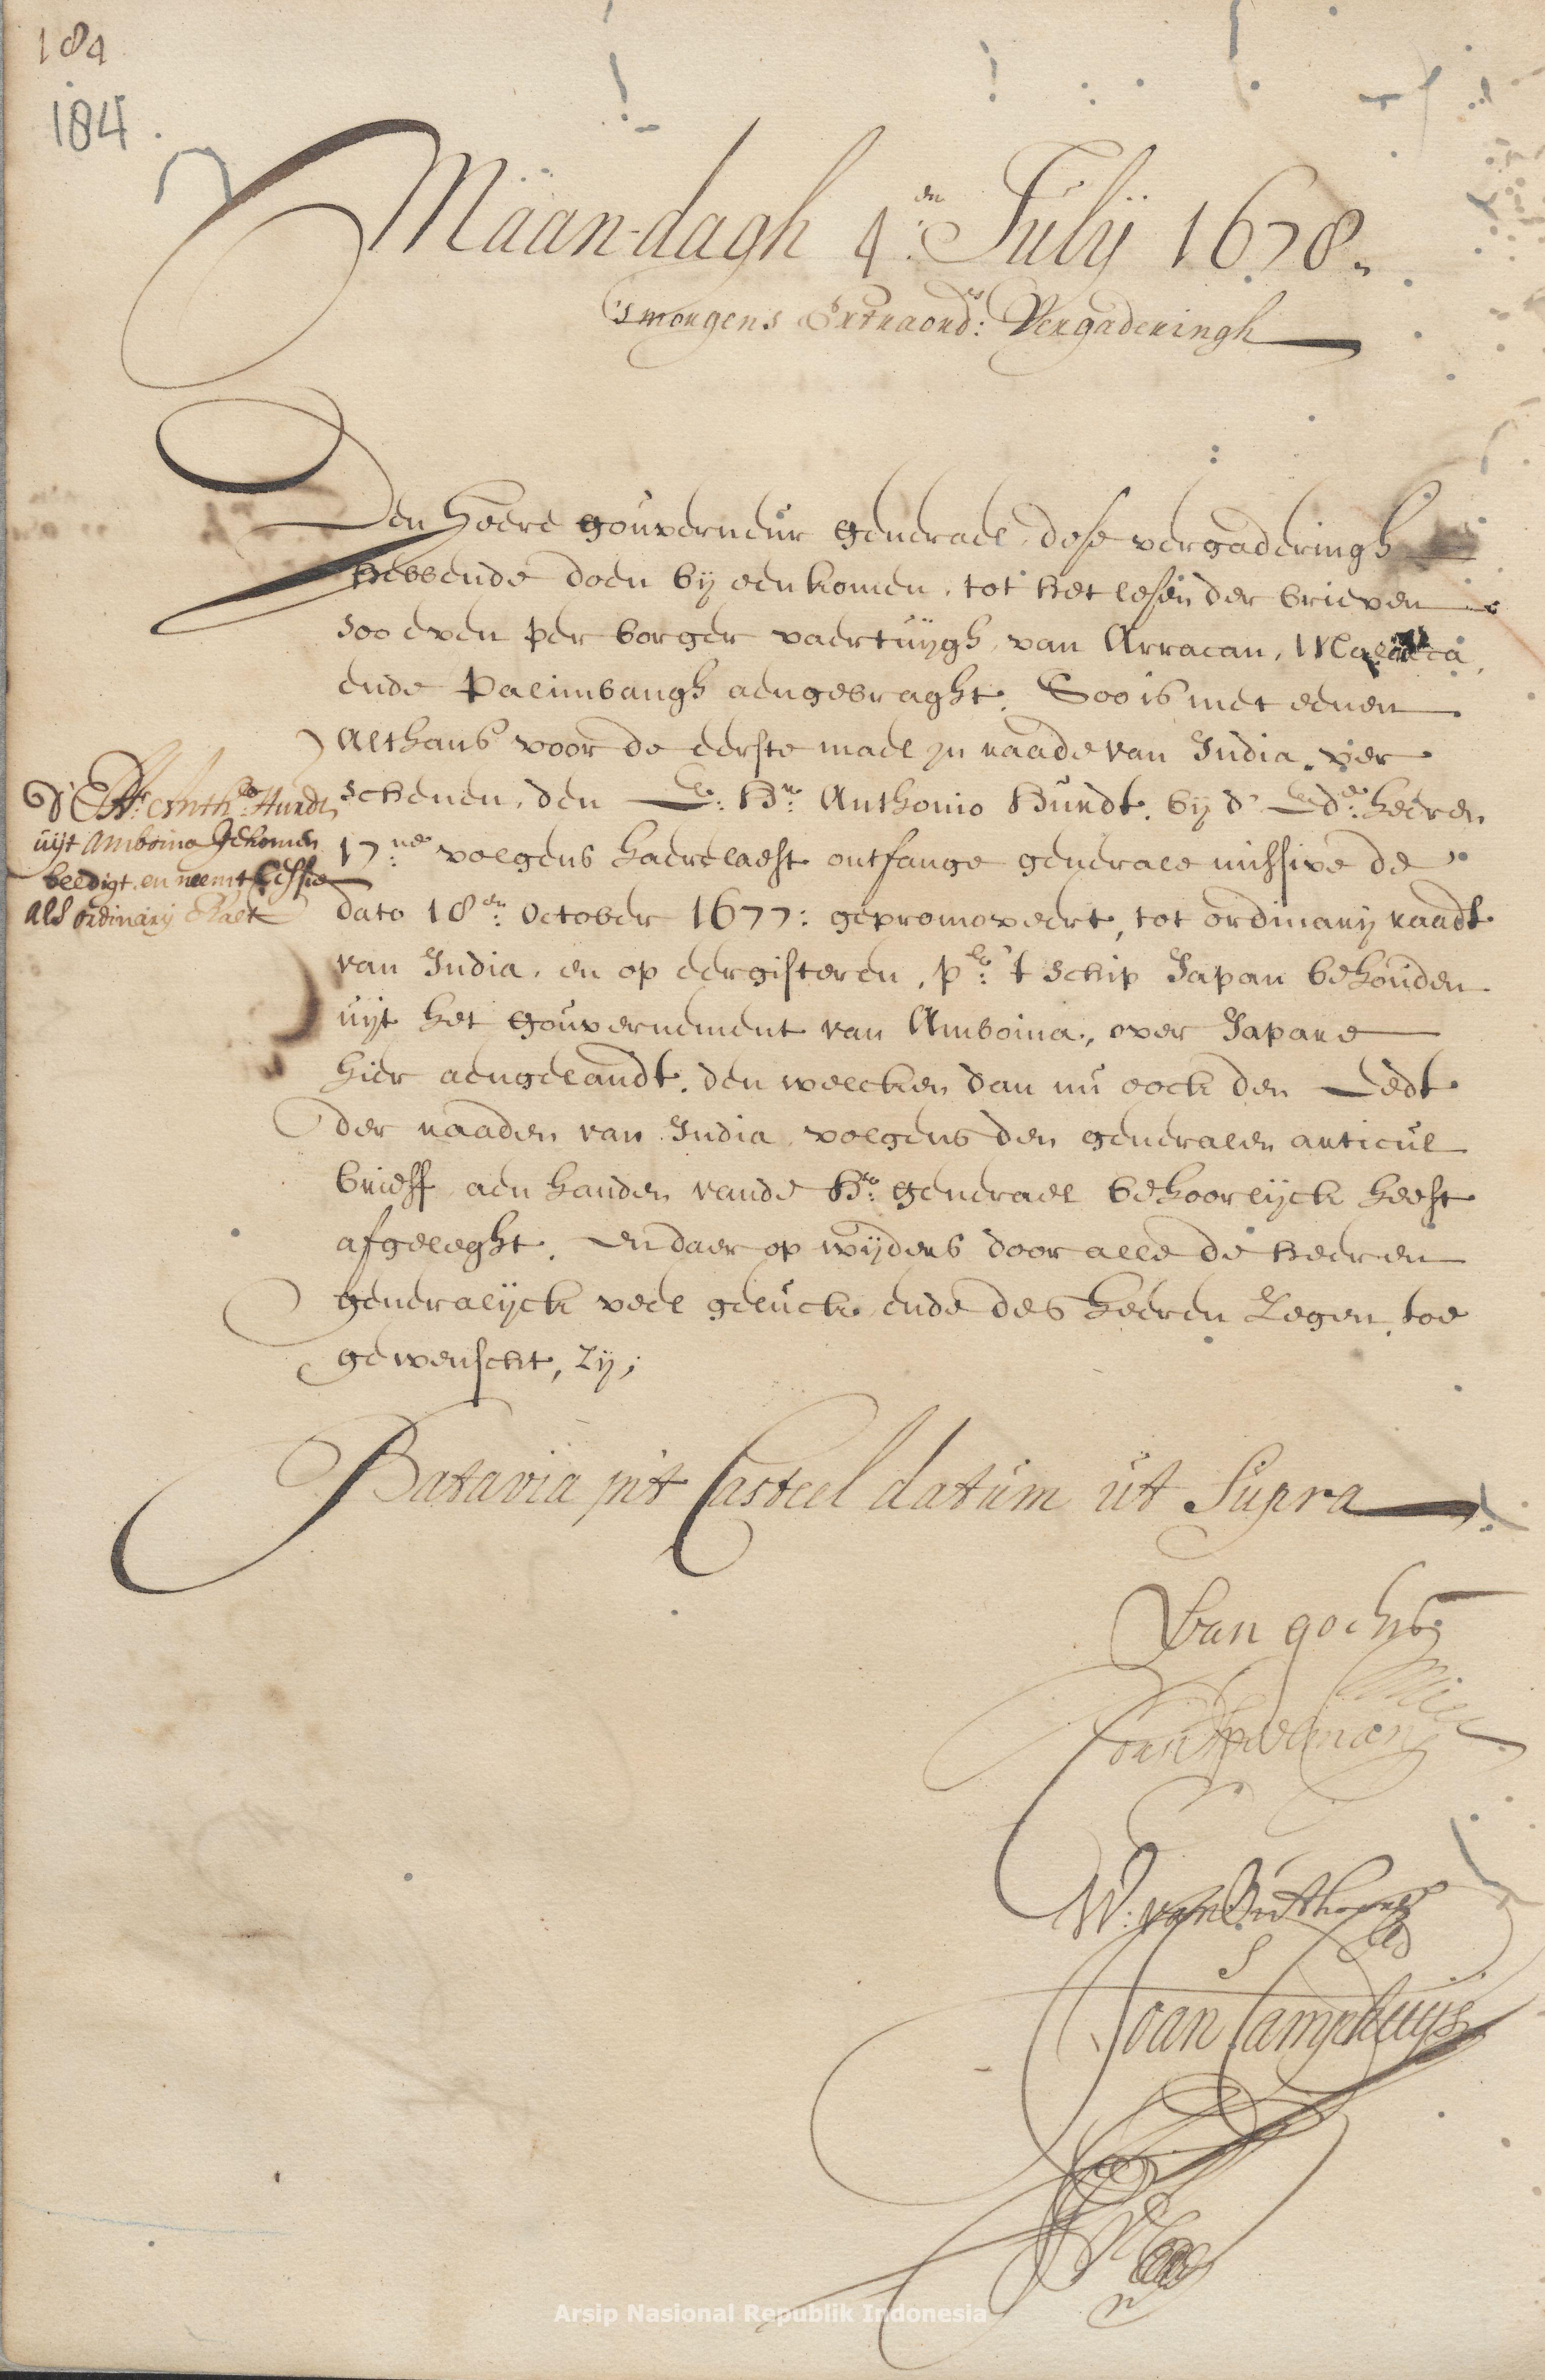 184
184.
Maandagh 4en: Julij 1678.
'smorgens Extraord:es Vergaderingh
Den Heere gouverneur generael, dese vergaderingh
hebbende doen bij een komen, tot het lesen der brieven
soo even per borger vaertuijgh, van Arracan, Malacca,
ende Palimbangh aengebraght, Soo is met eenen
althans voor de eerste mael in raade van India, ver
schenen, den E: Hr: Anthonio Hurdt, bij d' Ede: heeren
17:ne volgens haere laest ontfange generale missive de
dato 18en: October 1677: gepromoveert, tot ordinarij raadt
van India, en op eergisteren, pr: 't schip Japan behouden
uijt het gouvernement van Amboina, over Japara
hier aengelandt, den welcken dan nu oock den Eedt
der raaden van India, volgens den generalen articul
brieff, aen handen vande Hr: generael behoorlijck heeft
afgeleght, en daer op wijders door alle de heeren
generalijck veel geluck, ende des heeren Zegen, toe
gewenscht, zij;
D' E Hr. Anth:o Hurdt
uijt Amboina gekomen
beedigt, en neemt Sessie
als ordinarij Raet
Batavia int Casteel datum ut Supra
Van Goens
Corn: Speelman
W: van Outhoorn
Joan Camphuijs
Arsip Nasional Republik Indonesia